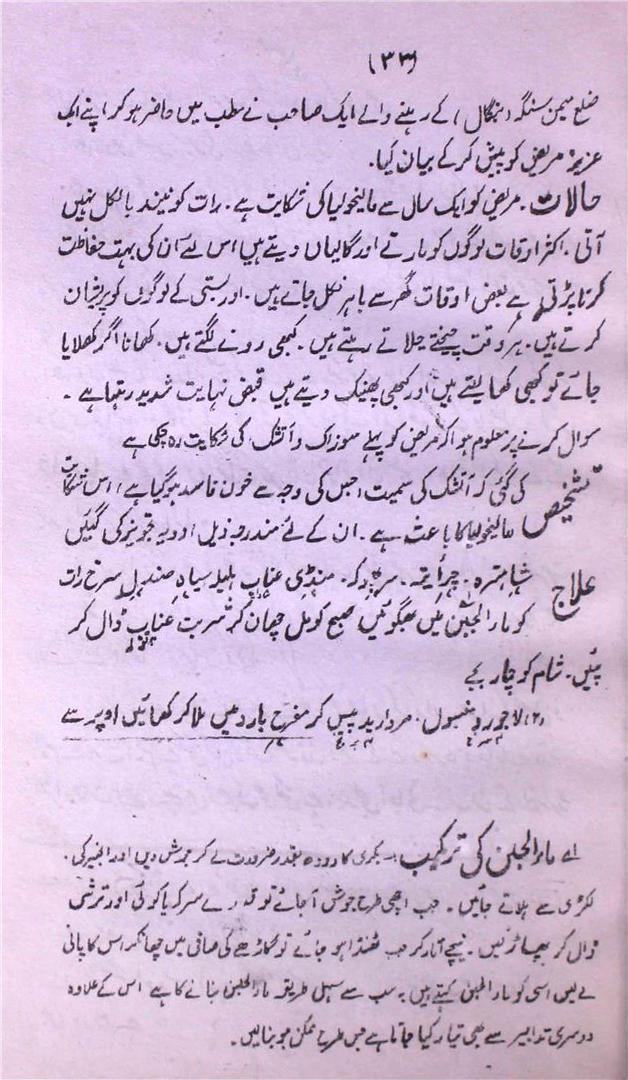 (۳۳)
ضلع میمن سنگھ (بنگال) کے رہنے والے ایک صاحب نے مطب میں حاضر ہو کر اپنے ایک
عزیز مریض کو پیش کر کے بیان کیا۔
حالات۔ مریض کو ایک سال سے مالیخولیا کی شکایت ہے۔ رات کو نیند بالکل نہیں
آتی۔ اکثر اوقات لوگوں کو مارتے اور گالیاں دیتے ہیں اس لئے ان کی بہت حفاظت
کرنا پڑتی ہے بعض اوقات گھر سے باہر نکل جاتے ہیں۔ اور بستی کے لوگوں کو پریشان
کرتے ہیں۔ ہر وقت چیختے چلاتے رہتے ہیں۔ کبھی رونے لگتے ہیں۔ کھانا اگر کھلایا
جائے تو کبھی کھا لیتے ہیں اور کبھی پھینک دیتے ہیں قبض نہایت شدید رہتا ہے۔
سوال کرنے پر معلوم ہوا کہ مریض کو پہلے سوزاک و آتشک کی شکایت رہ چکی ہے
تشخیص کی گئی کہ آتشک کی سمیت (جس کی وجہ سے خون فاسد ہو گیا ہے) اس شکایت
مالیخولیا کا باعث ہے۔ ان کے لئے مندرجہ ذیل ادویہ تجویز کی گئیں
علاج شاہترہ۔ چرائتہ۔ سرپھوکہ۔ منڈی عناب ہلیلہ سیاہ صندل سرخ رات
کو ماء الجبن میں بھگوئیں صبح کو مل چھان کر شربت عناب ڈال کر
پئیں۔ شام کو چار بجے
(۲) لاجورد مغسول۔ مروارید پیس کر مفرح بارد میں ملا کر کھائیں اوپر سے
اے ماء الجبن کی ترکیب:۔ بکری کا دودھ بقدر ضرورت لے کر جوش دیں اور انجیر کی
لکڑی سے ہلاتے جائیں۔ جب اچھی طرح جوش آ جائے تو قدرے سرکہ یا کوئی اور ترشی
ڈال کر پھاڑ لیں۔ نیچے اتار کر جب ٹھنڈا ہو جائے تو گاڑھے کی صافی میں چھانکر اس کا پانی
لے لیں اسی کو ماء الجبن کہتے ہیں یہ سب سے سہل طریقہ ماء الجبن بنانے کا ہے اس کے علاوہ
دوسری تدابیر سے بھی تیار کیا جاتا ہے جس طرح ممکن ہو بنالیں۔